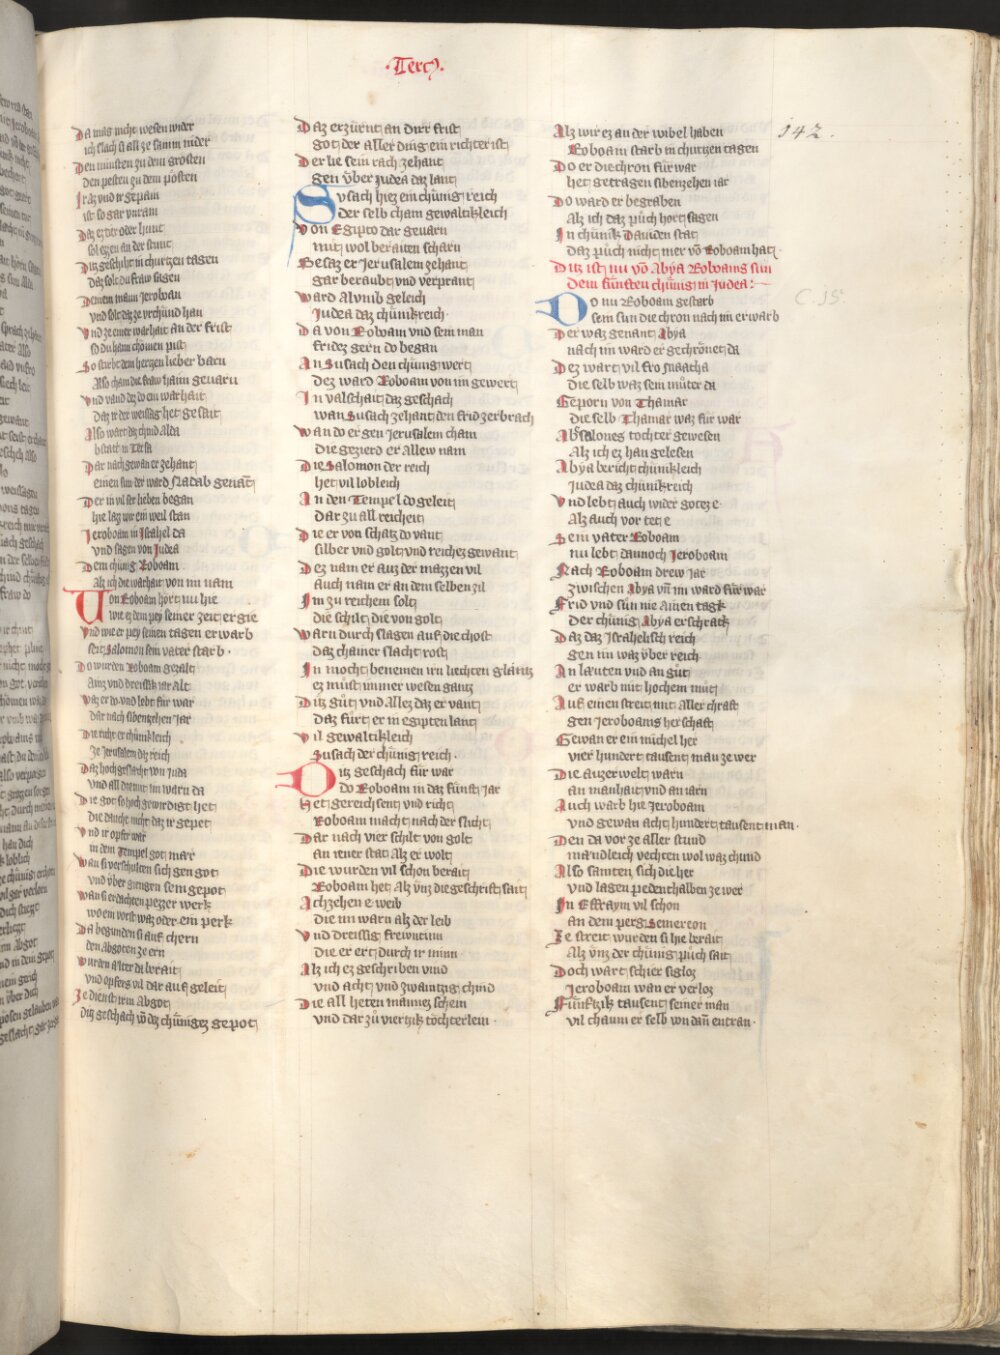 ·Tercȝ·
Da mag nicht wesen wider
ich slach si all ze samm nider
Den minsten zu dem grosten
den pesten zu dem posten
Iraz vnd ir gepain
ist so gar vnrain
Daz ez tier oder hunt
sol ezzen an der stunt
Ditz geschiht in churtzen tagen
daz solt du fraw sagen
Deinem mann Jeroboan
vnd solt daz ze vrchund han
Vnd ze einer warhait an der frist
so du haim chomen pist
So stirbt dein hertzen lieber barn
Also cham die fraw haim geuarn
Vnd vand daz do ein warhait
Daz ir der weissag het gesait
Also wart daz chind alda
bstatt in Tersa
Dar nach gewan er zehant
einen sun der ward Nadab genāt
Der in vil ser lieben began
hie laz wir ein weil stan
Jeroboam in Israhel da
vnd sagen von Judea
Dem chünig Roboam
als ich die warhait von im nam
Von Roboam hort nu hie
wie ez dem pey seiner zeit ergie
Vnd wie er pey seinen tagen erwarb
seit Salomon sein vater starb·
Do wurden Roboam gezalt
Ainz vnd dreissik iar alt
Waz er do vnd lebt für war
dar nach sibenzehen jar
Die richt er chünikleich
ze Jerusalem daz reich
Daz hoch geslacht von Juda
vnd all die mit im warn da
Die got so hoch gewirdigt het
die daucht nicht daz ir gepet
Vnd ir opfer war
in dem Tempel got mar
Wan si verschulten sich gen got
vnd vber giengen sein gepot
Wan si erdachten pezzer werk
wo ein vorst waz oder ein perk
Da begunden si auf chern
den Abgoten ze ern
Wurden alter da berait
vnd opfers vil dar auf geleit
Ze dienst irm Abgot
ditz geschach wˀd dez chünigez gepot
Daz erzürnt an dirr frist
got der aller ding ein richter ist
Der lie sein rach zehant
gen vber Judea daz lant
Susach hiez ein chünig reich
der selb cham gewaltikleich
Von Egipto dar geuarn
mit wol beraiten scharn
Besaz er Jerusalem zehant
gar beraubt vnd verprant
Ward Alvmb geleich
Judea daz chünikreich·
Da von Roboam vnd sein man
fridez gern do began
An Susach den chünig wert
dez ward Roboam von im gewert
In valschait daz geschach
wan Susach zehant den frid zerbrach
Wan do er gen Jerusalem cham
die gezierd er allew nam
Die Salomon der reich
het vil lobleich
In den Tempel do geleit
dar zu all reicheit
Die er von schatz do vant
silber vnd golt vnd reichez gewant
Dez nam er auz der mazzen vil
auch nam er an dem selben zil
Im zu reichem solt
die schilt die von golt
Warn durch slagen auf die chost
daz chainer slacht rost
In mocht benemen irn liechten glantz
ez müst immer wesen gantz
Ditz güt vnd allez daz er vant
daz fürt er in egipten lant
Vil gewaltikleich
Susach der chünig reich·
Ditz geschach für war
do Roboam in daz fünft jar
Het gereichsent vnd richt
Roboam macht nach der slicht
Dar nach vier schilt von golt
an iener stat alz er wolt
Die wurden vil schon berait
Roboam het alz vnz die geschrift sait
Achzehen e weib
die im warn alz der leib
Vnd dreissig frewntinn
die er ert durch ir minn
Alz ich ez geschriben vind
vnd acht vnd zwaintzig chind
Die all heten mannez schein
vnd dar zů viertzik töchterlein·
Alz wir ez an der wibel haben
Roboam starb in churtzen tagen
Do er die chron für war
het getragen sibenzehen iar
Do ward er begraben
Alz ich daz půch hort sagen
In chünik Dauiden stat
daz půch nicht mer vō Roboam hat·
Ditz ist nu vō Abya Roboams sun
dem fünften chünig in Judea:
Do nu Roboam gestarb
sein sun die chron nach im erwarb
Der waz genant Abya
nach im ward er gechrönet da
Dez wart vil fro Maacha
die selb waz sein můter da
Geporn von Thamar
die selb Thamar waz für war
Absalones tochter gewesen
Alz ich ez han gelesen
Abya bericht chünikleich
Judea daz chünikreich
Vnd lebt auch wider gotez e
Alz auch vor tet e
Sein vater Roboam
nu lebt dannoch Jeroboam
Nach Roboam drew jar
zwischen Abya vn̄ im ward für war
Frid vnd sün nie ainen tagk
der chünig Abya erschrak
Daz daz Israhelisch reich
gen im waz vber reich
An läuten vnd an güt
er warb mit hochem mut
Auf einen streit mit aller chraft
gen Jeroboams herschaft
Gewan er ein michel her
vier hundert tausent man ze wer
Die auzerwelt warn
an manhait vnd an iarn
Auch warb hie Jeroboam
vnd gewan acht hundert tausent man·
Den da vor ze aller stund
mandleich vechten wol waz chund
Also samten sich die her
vnd lagen pedenthalben ze wer
In Effraym vil schon
an dem perg Semereon
Ze streit wurden si hie berait
Alz vnz der chünig půch sait
Doch wart schier sigloz
Jeroboam wan er verloz
Fünftzik tausent seiner man
vil chaum er selb von dan̄ entran·
142.
C. 15.